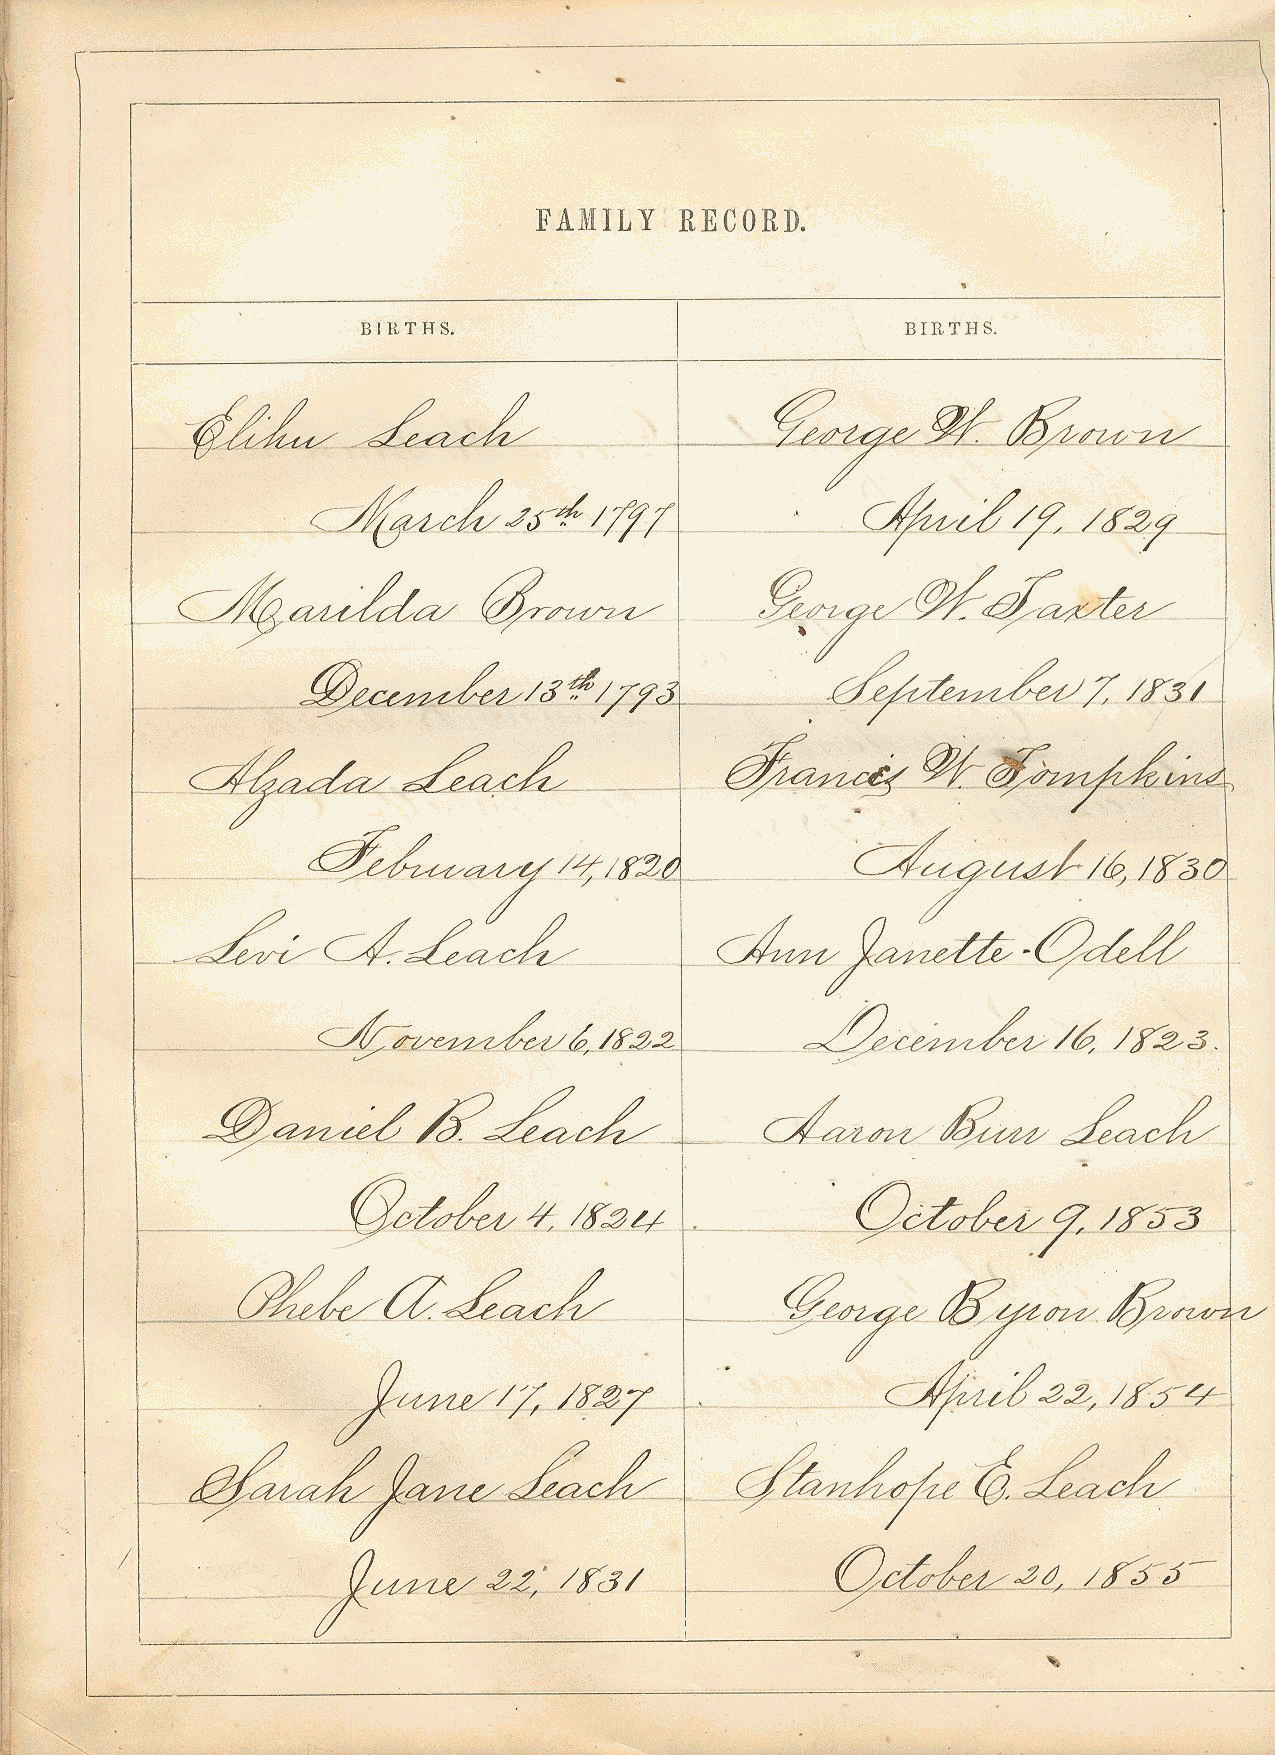 FAMILY RECORD.
BIRTHS.
Elihu Leach
March 25th 1797
Marilda Brown
December 13th 1793
Alzada Leach
February 14, 1820
Levi A. Leach
November 6, 1822
Daniel B. Leach
October 4, 1824
Phebe A. Leach
June 17, 1827
Sarah Jane Leach
June 22, 1831
BIRTHS.
George W. Brown
April 19, 1829
George W. Taxter
September 7, 1831
Francis W. Tompkins
August 16, 1830
Ann Janette - Odell
December 16, 1823.
Aaron Burr Leach
October 9, 1853
George Byron Brown
April 22, 1854
Stanhope E. Leach
October 20, 1855